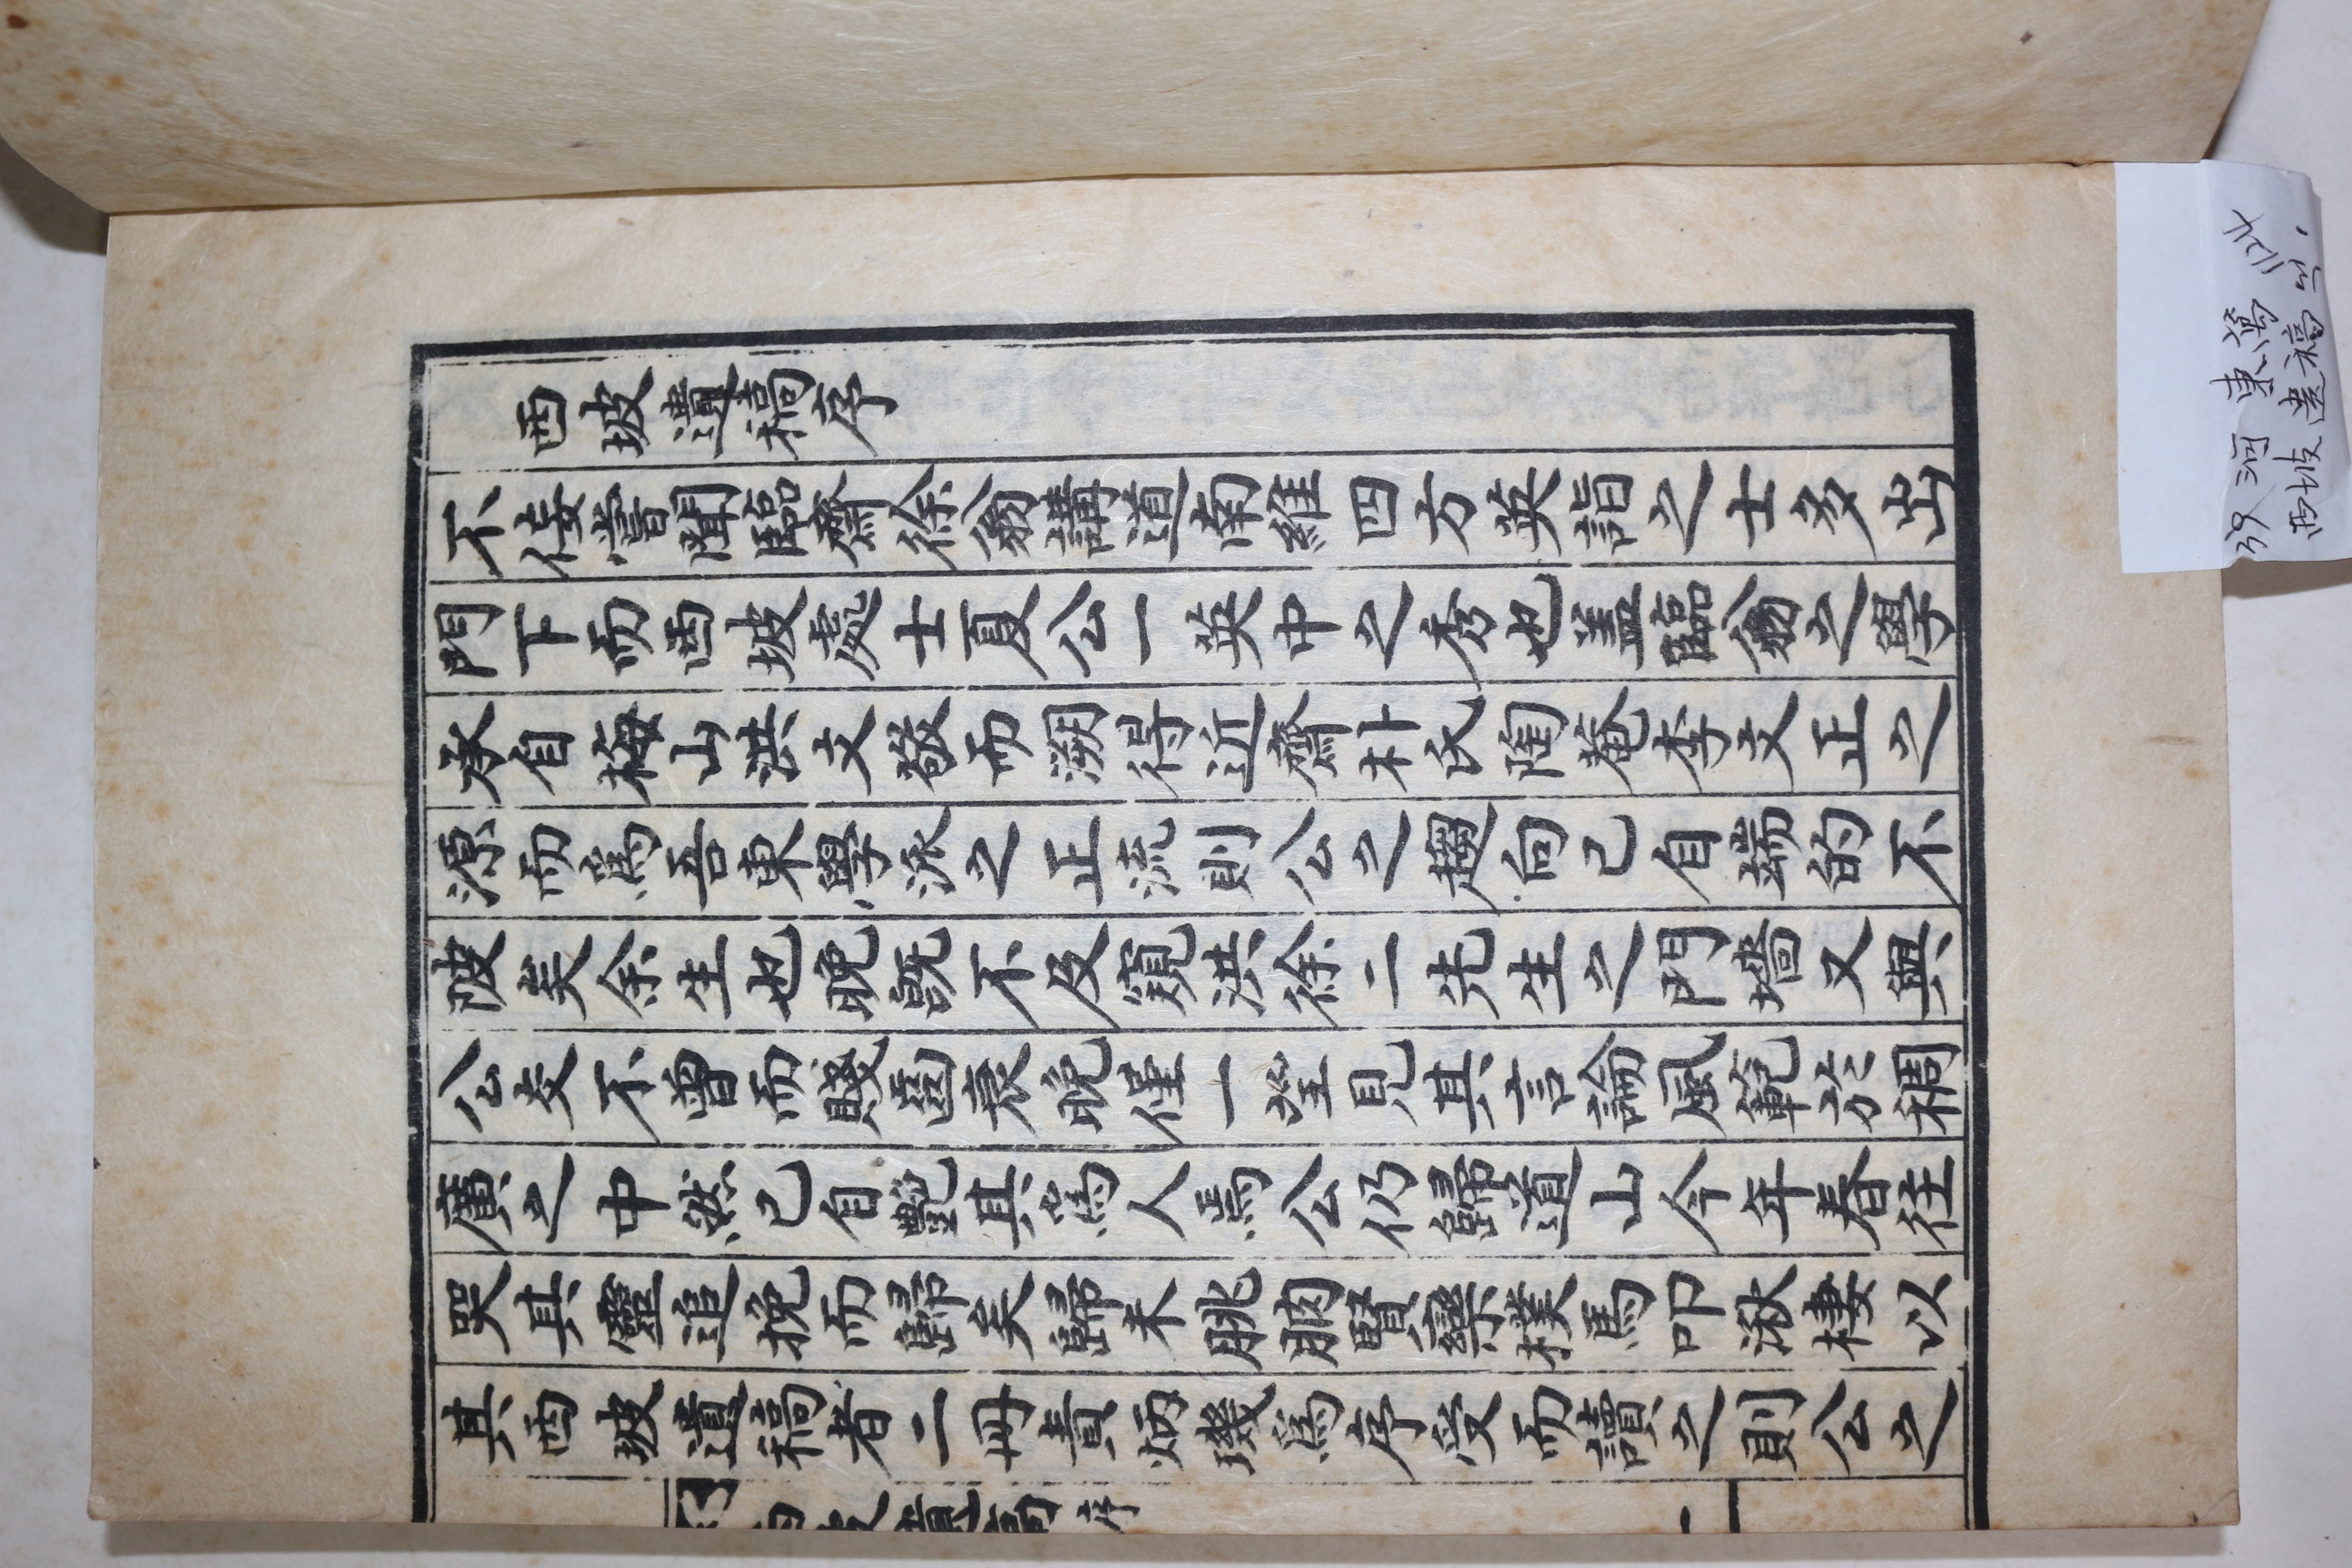 西坡遺稿序
不佞嘗聞臨齋徐翁講道南維四方英詣之士多出
門下而西坡處士夏公一英中之秀也盖臨翁之學
承自梅山洪文敬而溯得近齋朴氏陶菴李文正之
源而爲吾東學派之正流則公之趨向已自端的不
陂矣余生也晚旣不及窺洪徐二先生之門墻又與
公交不曾而賤齒衰晚僅一望見其言論風範於稠
廣之中然已自艶其爲人焉公仍歸道山今年春往
哭其靈追挽而歸矣歸未朓朒賢欒樸馬叩湫棲以
其西坡遺稿者二冊責炳璣爲序受而讀之則公之
西坡遺稿 序
一
河東
西坡遺稿